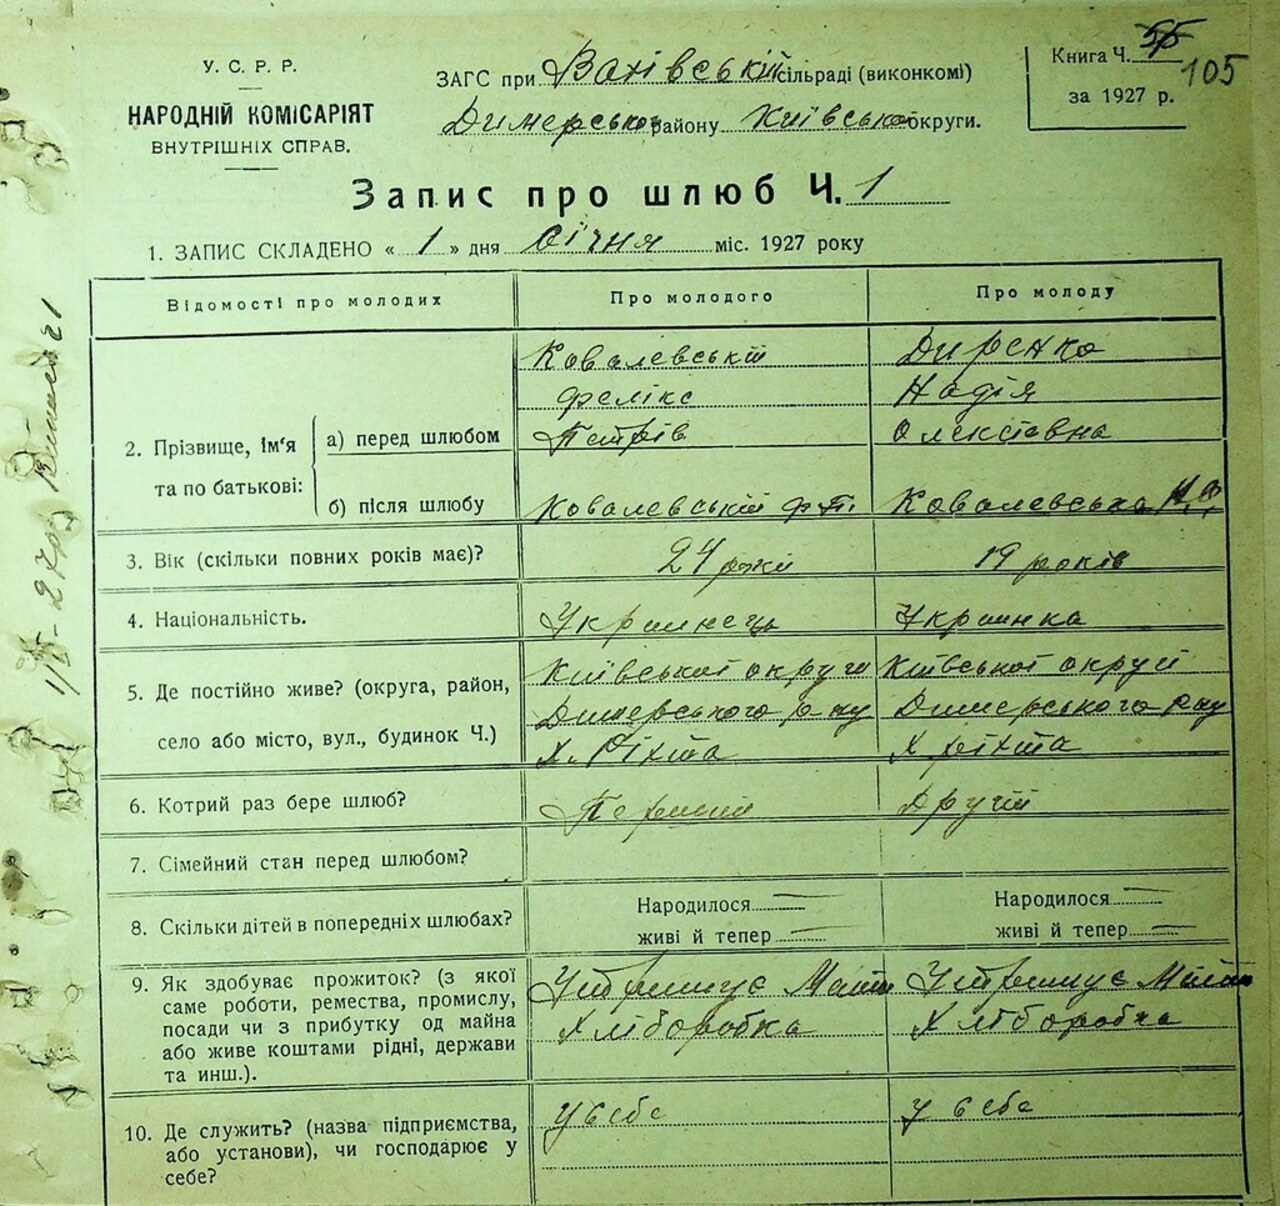 У. С. Р. Р.
НАРОДНІЙ КОМІСАРІЯТ
ВНУТРІШНІХ СПРАВ.
ЗАГС при Вахівській сільраді (виконкомі)
Димерсько району Київсько округи.
Книга Ч. 55
105
за 1927 р.
Запис про шлюб Ч. 1
1. ЗАПИС СКЛАДЕНО « 1 » дня Січня міс. 1927 року
Відомості про молодих Про молодого Про молоду
Ковалевській Диренко
Фелікс Надія
2. Прізвище, ім'я та по батькові: а) перед шлюбом Петрів Олексієвна
б) після шлюбу Ковалевській Ф.П. Ковалевська Н.О.
3. Вік (скільки повних років має)? 24 роки 19 років
4. Національність. Украинець Украинка
5. Де постійно живе? (округа, район, Київської округи Київської округи
село або місто, вул., будинок Ч.) Димерського р-ну Димерського р-ну
Х. Ріхта Х Ріхта
6. Котрий раз бере шлюб? Перший Другій
7. Сімейний стан перед шлюбом?
8. Скільки дітей в попередніх шлюбах? Народилося — Народилося —
живі й тепер — живі й тепер —
9. Як здобуває прожиток? (з якої
саме роботи, ремества, промислу,
посади чи з прибутку од майна
або живе коштами рідні, держави
та инш.).
Хліборобка Хліборобка
10. Де служить? (назва підприємства, У себе У себе
або установи), чи господарює у
себе?